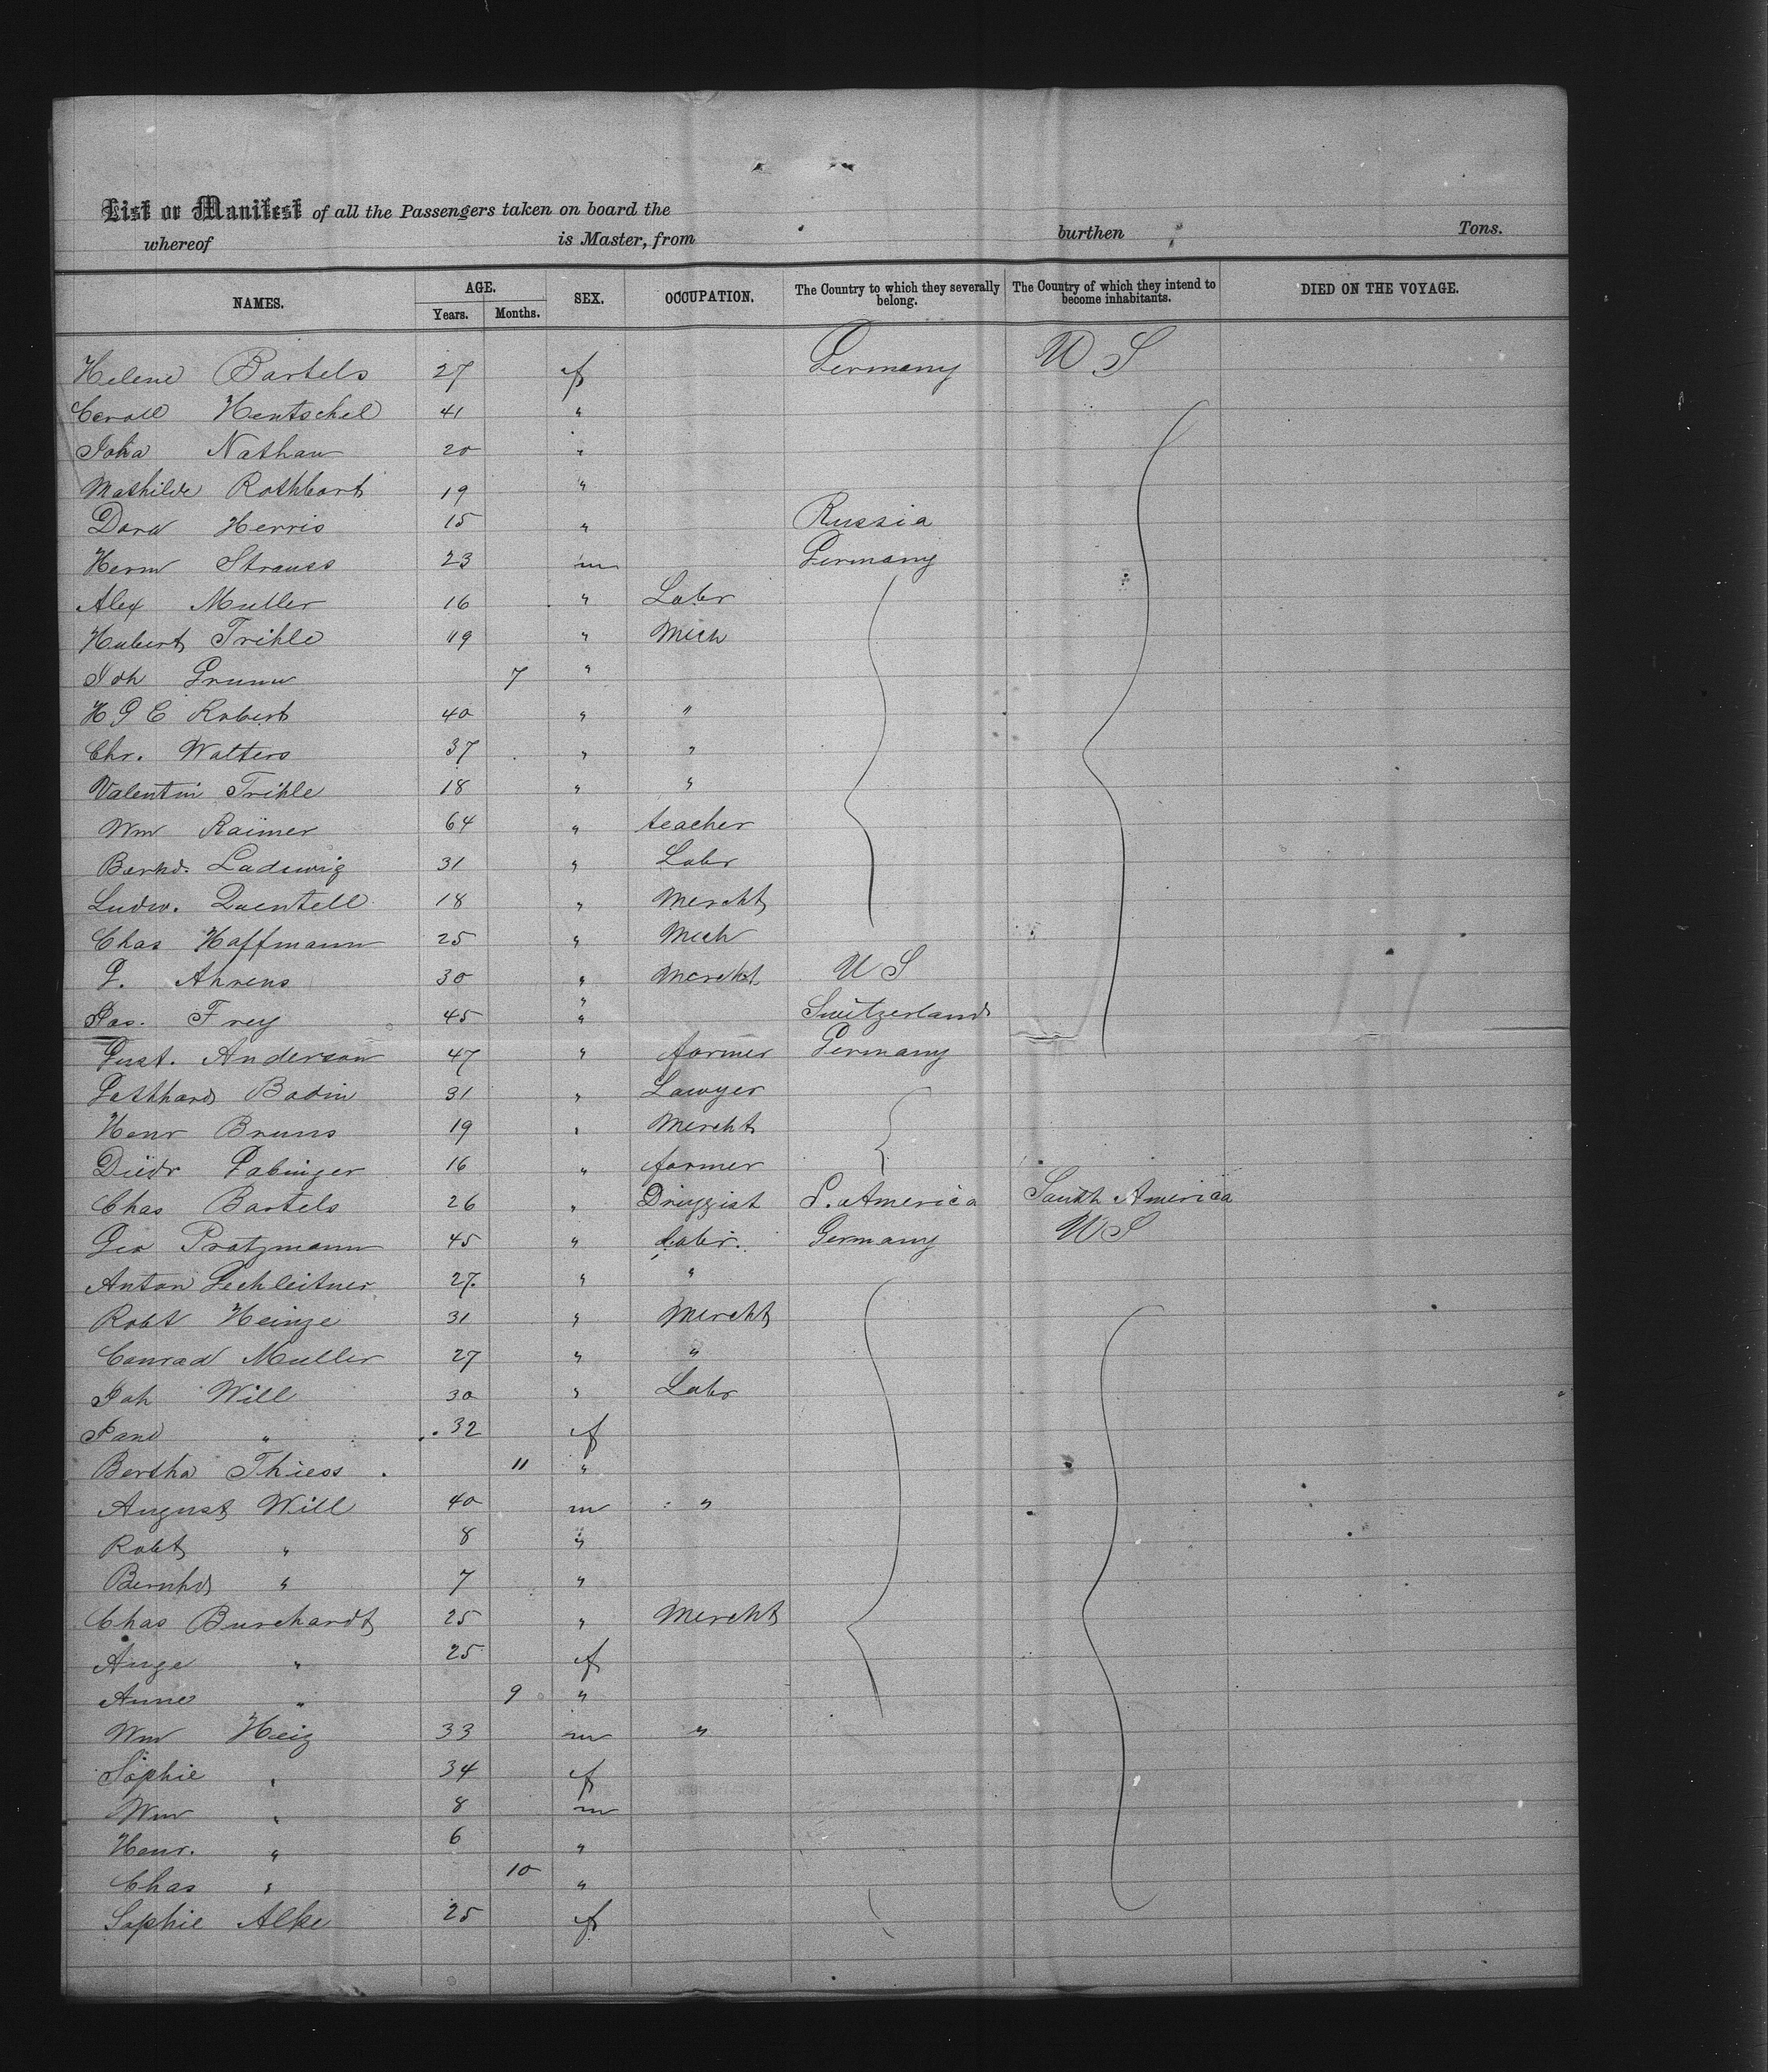 List or Manifest of all the Passengers taken on board the
whereof is Master, from burthen Tons.
NAMES. AGE. Years. Months. SEX. OCCUPATION. The Country to which they severally belong. The Country of which they intend to become inhabitants. DIED ON THE VOYAGE.
Helene Bartels 27 f Germany U S
Hentschel 41 "
Nathan 20 "
Mathilde Rothbart 19 "
Dora Herris 15 " Russia
Herm Strauss 23 m Germany
Alex Muller 16 " Labr
Hubert Trihle 19 " Mech
Joh Grunw 7 "
H G E Robert 40 " "
Chr. Walters 37 " "
Valentin Trihle 18 " "
Wm Raimer 64 " teacher
Bernd. Ladewig 31 " Labr
Ludw. Quentell 18 " Mercht
Chas Hoffmann 25 " Mech
G. Ahrens 30 " Mercht U S
Jac. Frey 45 " Switzerland
Gust. Anderson 47 " farmer Germany
Gotthard Bodin 31 " Lawyer
Henr Bruns 19 " Mercht
Diedr Gabinger 16 " farmer
Chas Bartels 26 " Druggist S. America South America
Geo Protzmann 45 " Labr. Germany U S
Anton Lechleitner 27 " "
Robt Heinze 31 " Mercht
Conrad Muller 27 " "
Joh Will 30 " Labr
Jane " 32 f
Bertha Thiess 11 "
August Will 40 m "
Robt " 8 "
Bernhd " 7 "
Chas Burchardt 25 " Mercht
Auge " 25 f
Anne " 9 "
Wm Heig 33 m "
Sophie " 34 f
Wm " 8 m
Henr. " 6 "
Chas " 10 "
Sophie Alke 25 f